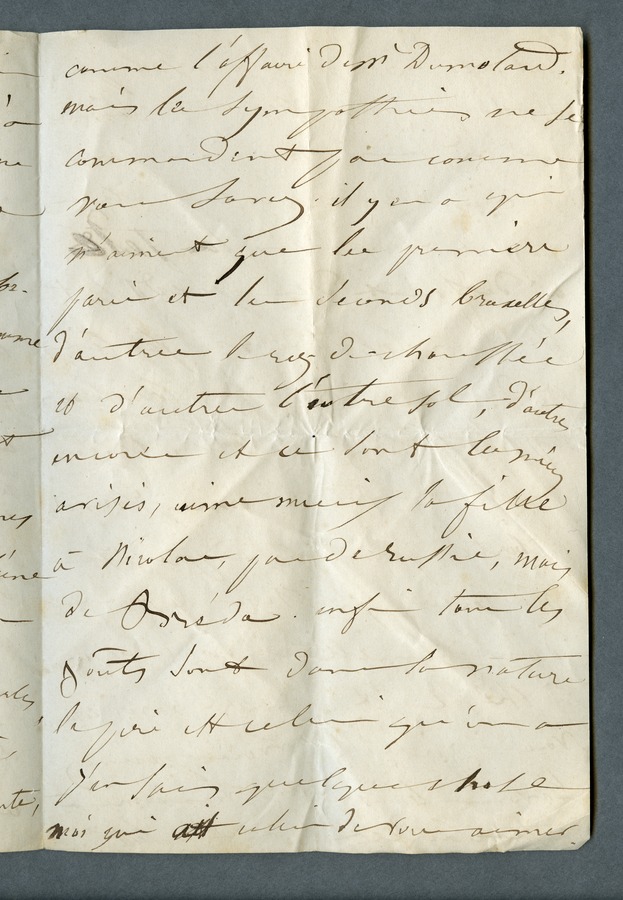 comme l'affaire de Mr Dumolard.
mais les sympathies ne se
commandent pas comme
vous savez. il y en a qui
n'aiment que les premiers
paris et les seconds bruxelles,
d'autres le rez-de-chaussée
et d'autres l'entresol, d'autres
encore et ce sont les mieux
avisés, aime mieux la fille
à Nicolas, pas de russie, mais
de Bréda. enfin tous les
goûts sont dans la nature
le pire est celui qu'on a
j'en sais quelque chose
moi qui ai celui de vous aimer.